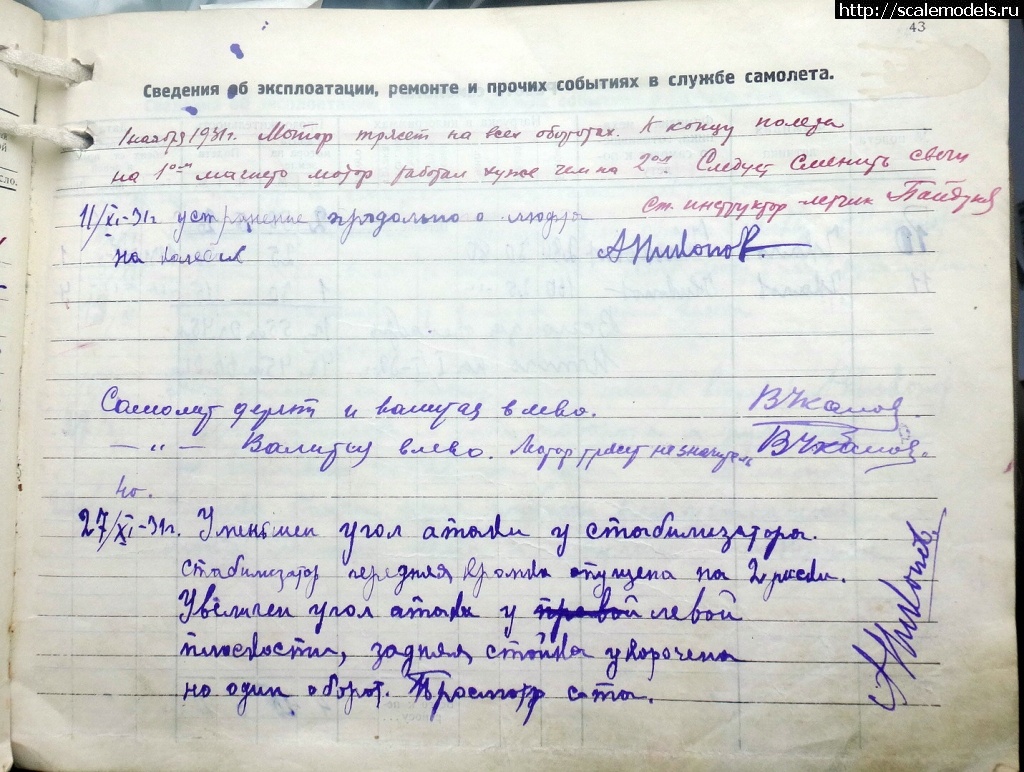 http://scalemodels.ru
43
Сведения об эксплоатации, ремонте и прочих событиях в службе самолета.
1 ноября 1931г. Мотор трясет на всех оборотах. К концу полета
на 1ом магнето мотор работал хуже чем на 2ом. Следует сменить свечи
ст. инструктор летчик
11/XI-31г устранение
на
АНиконов.
Самолет дерет и валится влево. ВЧкалов.
— „ — Валится влево. Мотор трясет незначитель ВЧкалов.
но.
27/XI-31г. Уменьшен угол атаки у стабилизатора.
стабилизатор передняя кромка опущена на 2 риски.
Увеличен угол атаки у правой левой
плоскости, задняя стойка укорочена
на один оборот. Просмотр
АНиконов